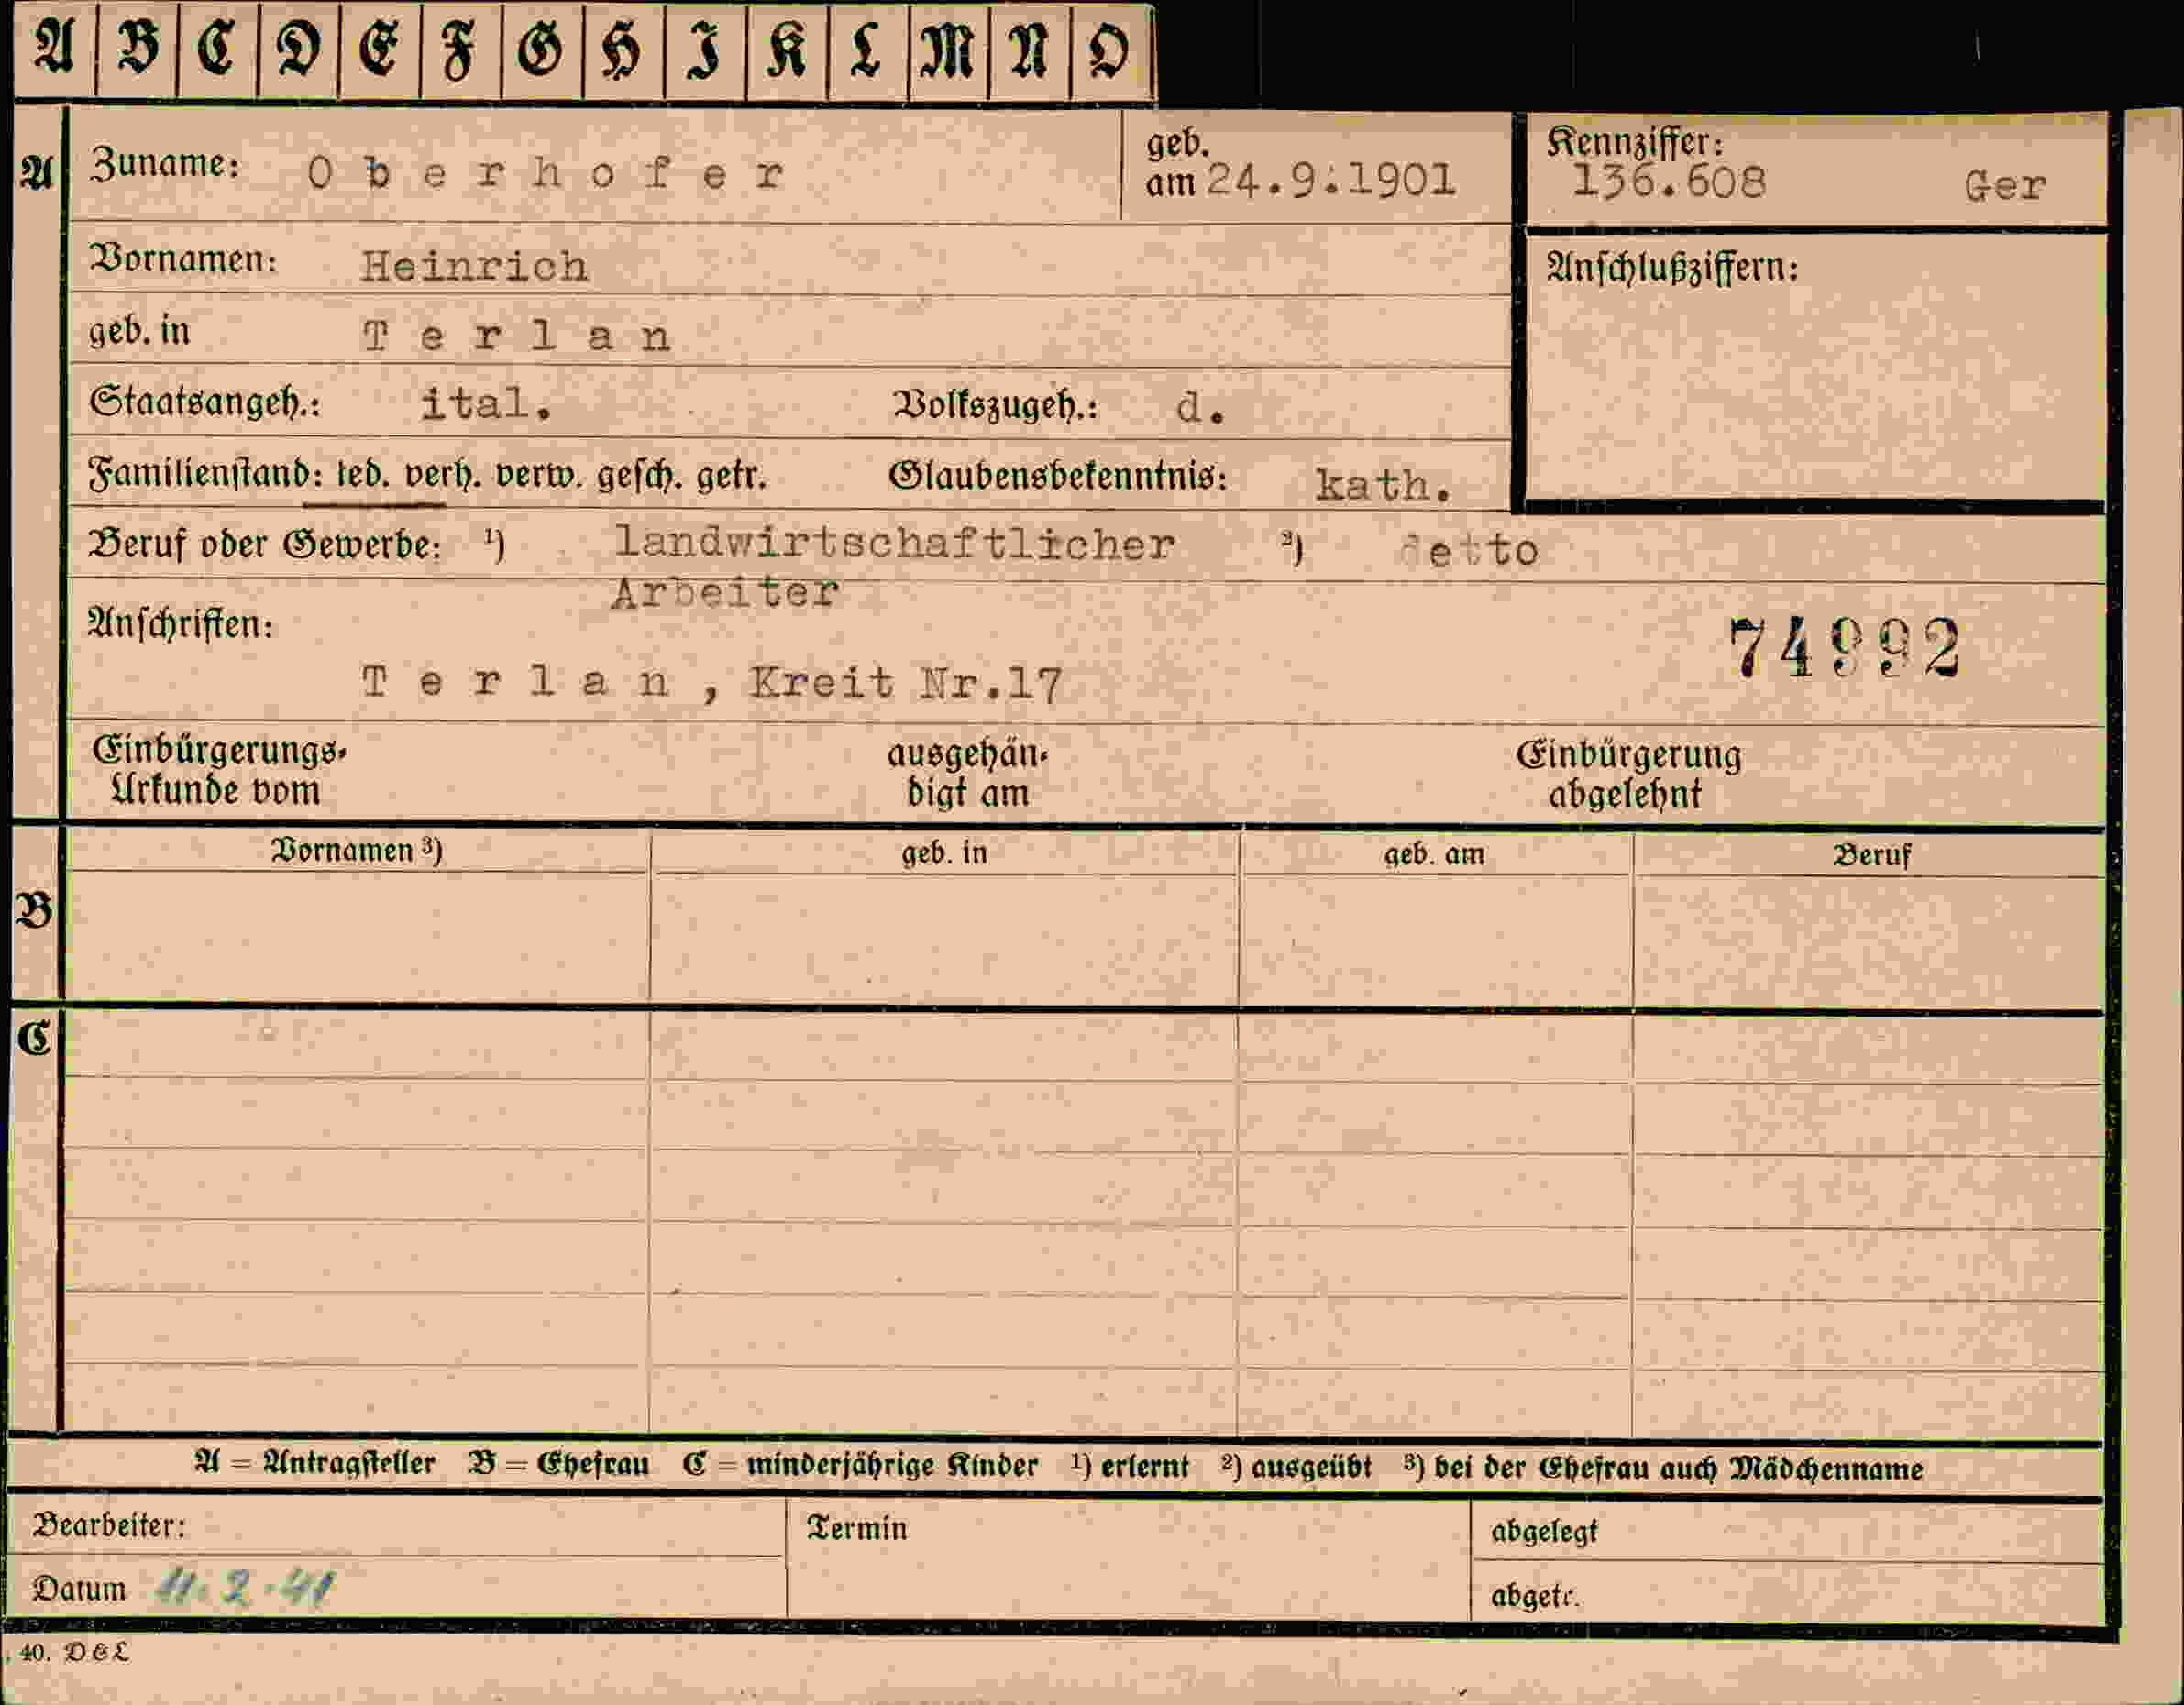 A B C D E F G H I K L M N O
A Zuname: Oberhofer geb. am 24.9.1901 Kennziffer: 136.608 Ger
Vornamen: Heinrich Anschlußziffern:
geb. in Terlan
Staatsangeh.: ital. Volkszugeh.: d.
Familienstand: led. verh. verw. gesch. getr. Glaubensbekenntnis: kath.
Beruf oder Gewerbe: ¹) landwirtschaftlicher Arbeiter ²) detto
Anschriften: 74992
Terlan, Kreit Nr.17
Einbürgerungs- ausgehän- Einbürgerung
Urkunde vom digt am abgelehnt
Vornamen ³) geb. in geb. am Beruf
B
C
A = Antragsteller B = Ehefrau C = minderjährige Kinder ¹) erlernt ²) ausgeübt ³) bei der Ehefrau auch Mädchenname
Bearbeiter: Termin abgelegt
Datum 11.2.41 abgetr.
40. DEL